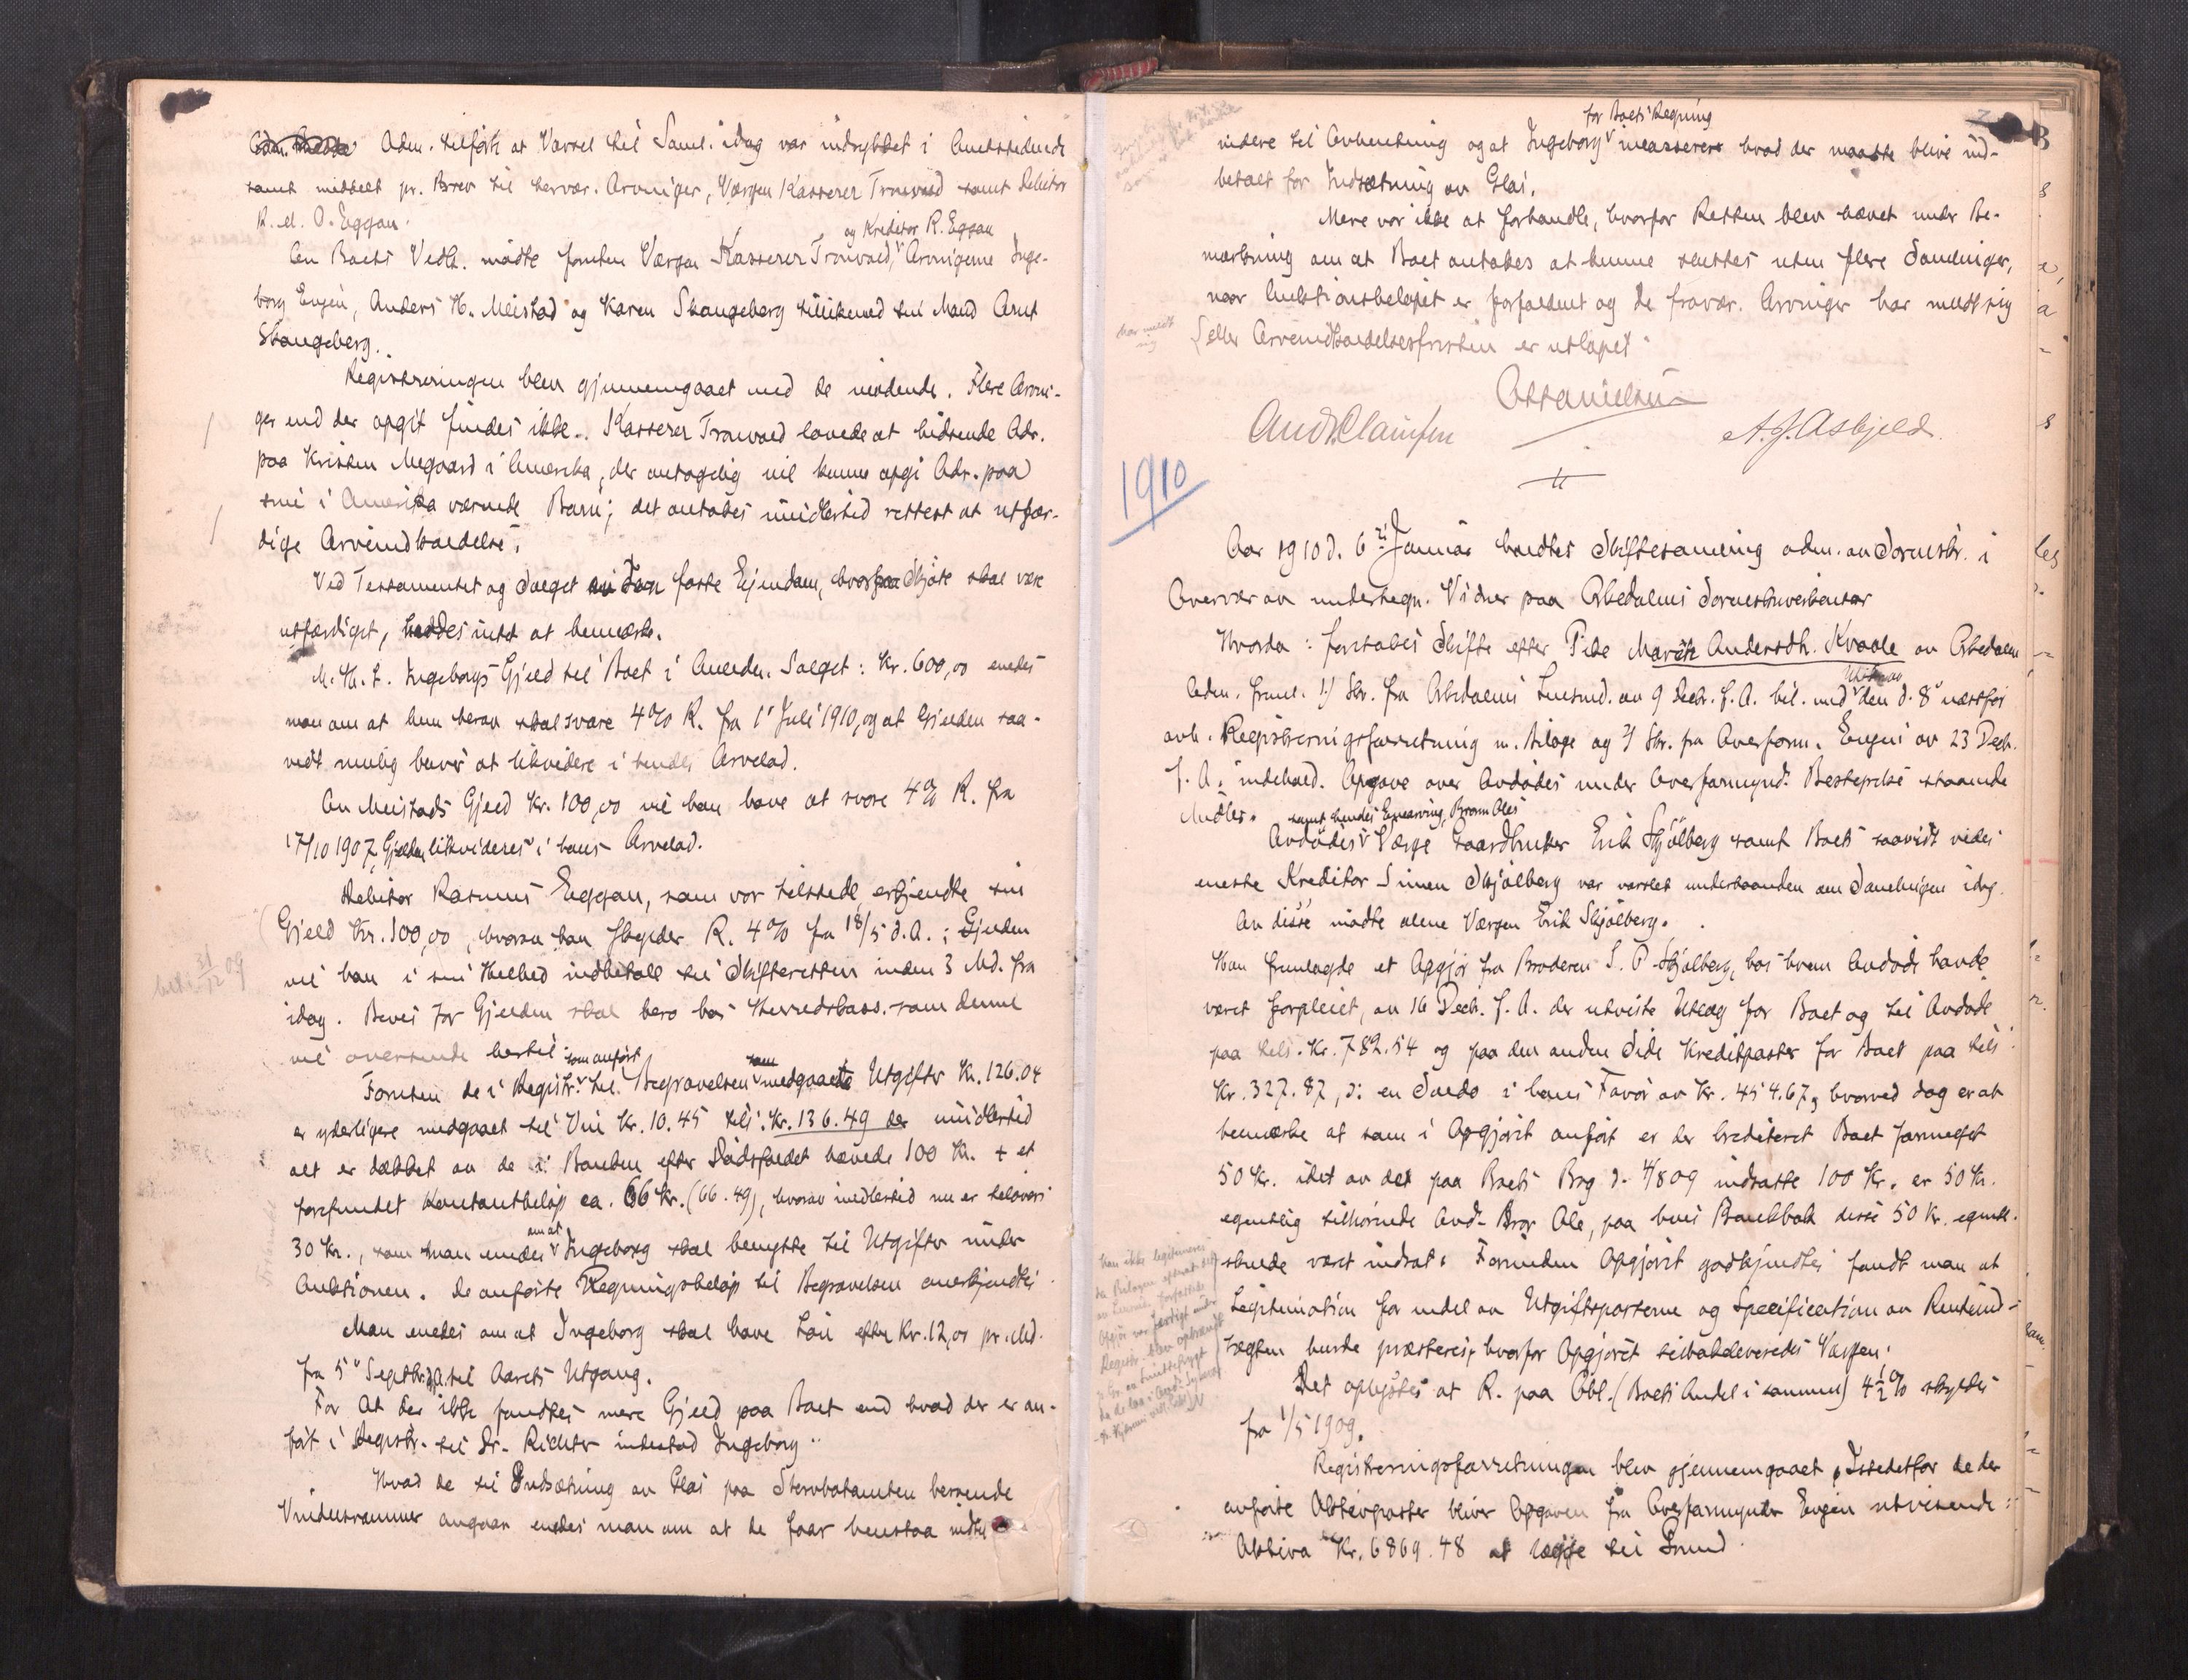 Adm. tilførte at Varsel til Saml. idag var indrykket i Amtstidende
samt meddelt pr. Brev til hervær. Arvinger, Værgen Kasserer Tronvold samt Debitor
R. M. O. Eggan.
og Kreditor R. Eggan
Av Boets Vedk. mødte foruten Værgen Kasserer Tronvold, Arvingerne Inge-
borg Engen, Anders H. Meistad og Karen Skangeberg tillikemed sin Mand Arnt
Skangeberg.
Registreringen blev gjennemgaaet med de mødende. Flere Arvin-
ger end der opgit findes ikke. Kasserer Tronvold lovede at tidsende Adr.
paa Kristen Megaard i Amerika, der antagelig vil kunne opgi Adr. paa
sine i Amerika værende Barn; det antokes imidlertid rettest at utfær-
dige Arveindkaldelse.
Ved Testamentet og Salget av den faste Ejendom, hvorpaa Skjøte skal være
utfærdiget, havdes intet at bemærke.
M. H. t. Ingeborgs Gjeld til Boet i Anledn. Salget: Kr. 600,00 enedes
man om at hun herav skal svare 4% R. fra 1' Juli 1910, og at Gjelden saa-
vidt mulig blevir at likvidere i hendes Arvelod.
Av Meistads Gjeld Kr. 100,00 vil han have at svare 4% R. fra
17/10 1907, Gjælden likvideres i hans Arvelod.
Debitor Rasmus Eggan, som var tilstede, erkjendte sin
Gjeld Kr. 100,00, hvorav han skylder R. 4% fra 18/5 d. A.; Gjelden
vil han i sin Helhed indbetale til Skifteretten inden 3 Md. fra
idag. Bevis for Gjelden skal bero hos Herredskass. som denne
vil oversende hertil.
bet. 31/12 09
som anført
Foruten de i Registr. til Begravelsen som medgaaete Utgifter Kr. 126.04
er yderligere medgaaet til Vin Kr. 10.45 tils. Kr. 136.49 der imidlertid
alt er dækket av de i Banken efter Dødsfaldet hævede 100 Kr. + et
forefundet Kontantbeløp ca. 66 Kr. (66.49), hvorav imidlertid nu er tilovers
30 Kr., som man enedes om at Ingeborg skal benytte til Utgifter under
Auktionen. De anførte Regningsbeløp til Begravelsen anerkjendtes.
Man enedes om at Ingeborg skal have Løn efter Kr. 12,00 pr. Md.
fra 5' Septbr. d. A. til Aarets Utgang.
For At der ikke fandtes mere Gjeld paa Boet end hvad der er an-
ført i Registr. til Dr. Richter indestod Ingeborg.
Hvad de til Indsætning av Glas paa Stervbotomten beroende
Vindusrammer angaar enedes man om at de faar henstaa indtil
for Boets Regning
videre til Avhentning og at Ingeborg inkasserer hvad der maatte blive ind-
betalt for Indsætning av Glas.
Mere var ikke at forhandle, hvorfor Retten blev hævet under Be-
mærkning om at Boet antokes at kunne sluttes uten flere Samlinger,
naar Auktionsbeløpet er forfaldent og de fravær. Arvinger har meldt sig
eller Arveindkaldelsesfristen er utløpet.
har meldt
sig
O Halvorsen
And. Clausen
A. J. Asbjeld.
1910
Aar 1910 d. 6' Januar holdtes Skiftesamling adm. av Sorenskr. i
Overvær av undertegn. Vidner paa Orkedalens Sorenskriverkontor
Hvorda: foretokes Skifte efter Pike Marit Andersdtr. Kvaale av Orkedalen
Adm. freml. 1) Skr. fra Orkedalens Lensmd. av 9 Decbr. f. A. bil. med Utskrift av den d. 8' næstfør
avh. Registreringsforretning m. Bilage og 2) Skr. fra Overform. Engen av 23 Decb.
f. A., indehold. Opgave over Avdødes under Overformynd. Bestyrelse staaende
Midler.
samt hendes Enearving, Broren Ole,
Avdødes Værge Gaardbruker Erik Skjølberg samt Boets saavidt vides
eneste Kreditor Simen Skjølberg var varslet underhaanden om Samlingen idag.
Av disse mødte alene Værgen Erik Skjølberg.
Han fremlagde et Opgjør fra Broderen S. P. Skjølberg, hos hvem Avdøde havde
været forpleiet, av 16 Decb. f. A. der utviste Utlæg for Boet og til Avdøde
paa tils. Kr. 782.54 og paa den anden Side Kreditposter for Boet paa tils.
Kr. 327.87, ɔ: en Saldo i hans Favør av Kr. 454.67, hvorved dog er at
bemærke at som i Opgjøret anført er der krediteret Boet formeget
50 Kr. idet av det paa Boets Bog d. 4/8 09 indsatte 100 Kr. er 50 Kr.
egentlig tilhørende Avd. Bror Ole, paa hvis Bankbok disse 50 Kr. egentl.
skulde været indsat. Forinden Opgjøret godkjendtes fandt man at
Legitimation for endel av Utgiftsposterne og Specification av Renteind-
tægten burde præsteres, hvorfor Opgjøret tilbakeleveredes Værgen.
Det oplystes at R. paa Obl. (Boets Andel i samme) 4½% skyldes
fra 1/5 1909.
Registreringsforretningen blev gjennemgaaet. Istedetfor de der
anførte Aktivposter bliver Opgaven fra Overformynder Engen utvisende
Aktiva Kr. 6869.48 at lægge til Grund.